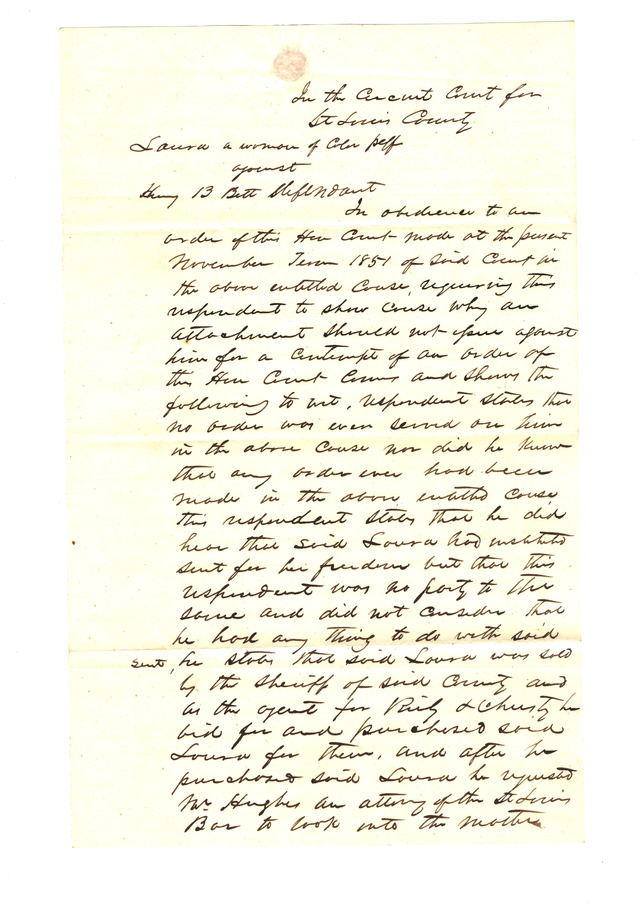 In the Circuit Court for
St Louis County
Laura a woman of Color Plff
against
Henry B Belt Defendant
In obedience to an
order of this Hon Court made at the present
November Term 1851 of said Court in
the above entitled Cause, requiring this
respondent to show cause why an
attachment should not issue against
him for a Contempt of an order of
this Hon Court Comes and shows the
following to wit, respondent states that
no order was ever served on him
in the above cause nor did he know
that any order ever had been
made in the above entitled cause
this respondent states that he did
hear that said Laura had instituted
suit for her freedom but that this
respondent was no party to the
same and did not consider that
he had any thing to do with said
suit, he states that said Laura was sold
by the Sheriff of said County and
as the agent for & Christy he
bid for and purchased said
Laura for them, and after he
purchased said Laura he requested
Mr Hughes an attorney of the St Louis
Bar to look into the matter